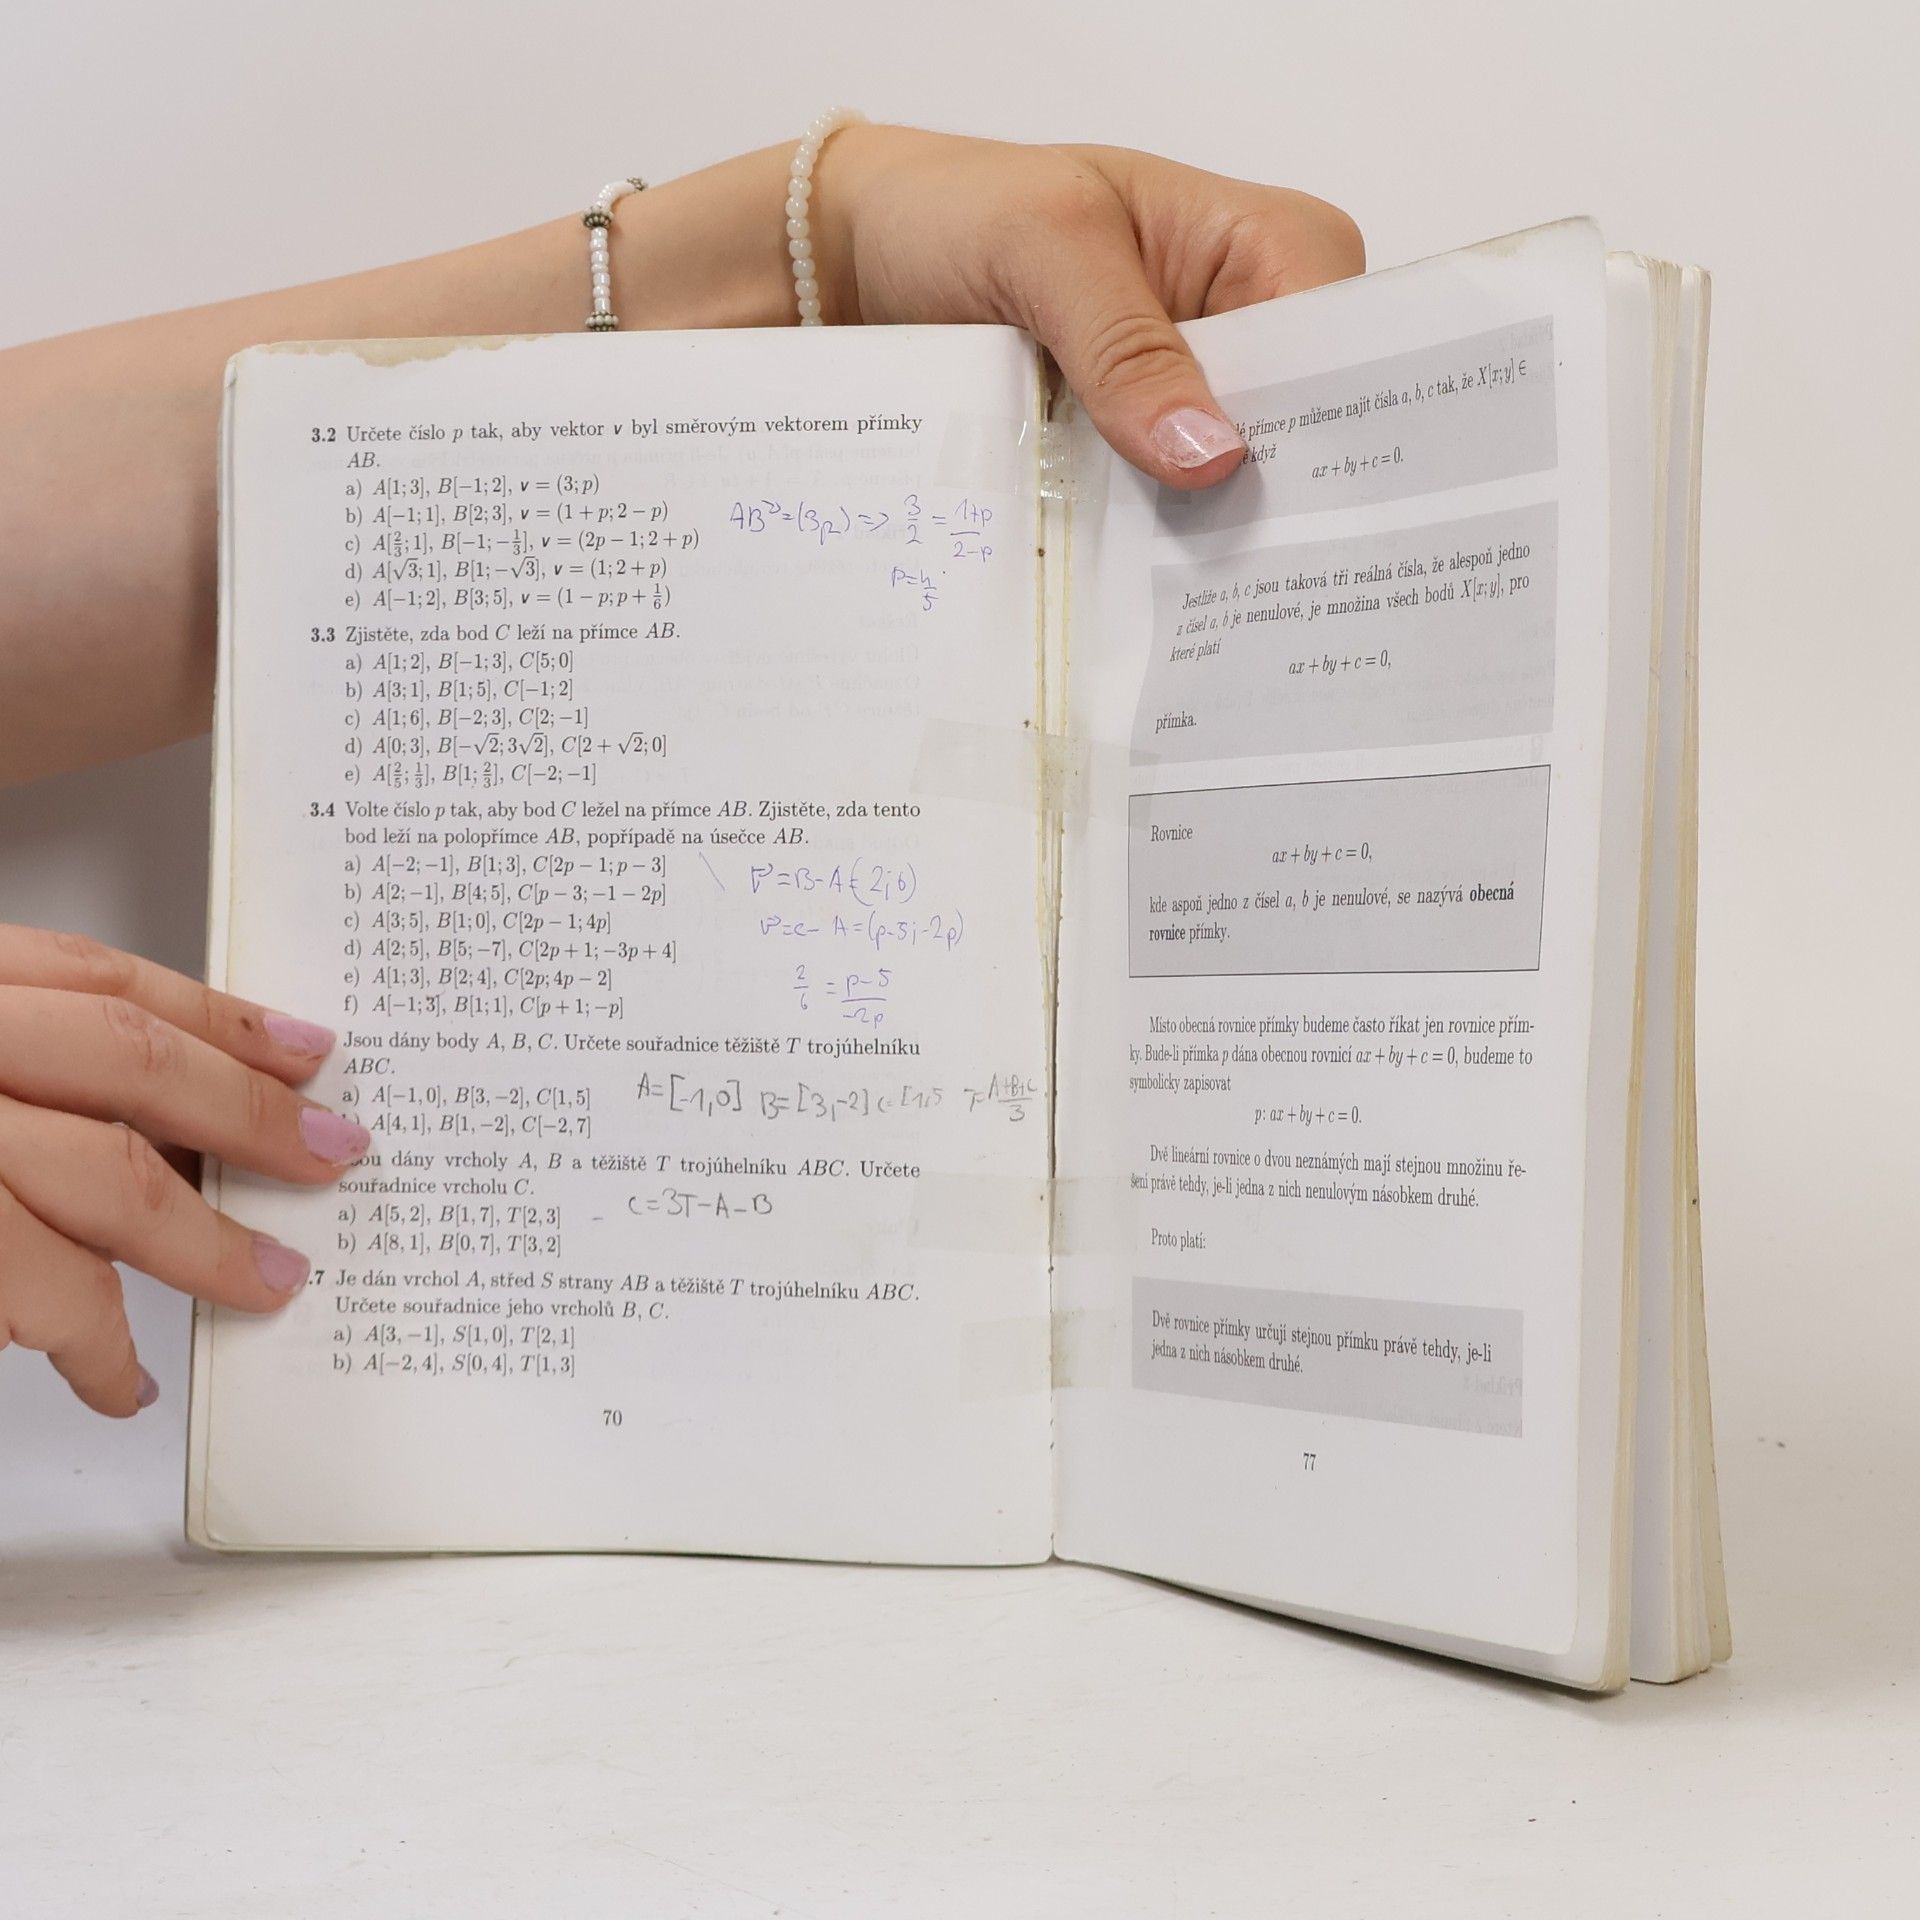 3.2 Určete číslo p tak, aby vektor v byl směrovým vektorem přímky
AB.
a) A[1; 3], B[−1; 2], v = (3; p)
b) A[−1; 1], B[2; 3], v = (1 + p; 2 − p)
c) A[2/3; 1], B[−1; −1/3], v = (2p − 1; 2 + p)
d) A[√3; 1], B[1; −√3], v = (1; 2 + p)
e) A[−1; 2], B[3; 5], v = (1 − p; p + 1/6)
=> 3/2 = 1+p/2−p
p=4/5
3.3 Zjistěte, zda bod C leží na přímce AB.
a) A[1; 2], B[−1; 3], C[5; 0]
b) A[3; 1], B[1; 5], C[−1; 2]
c) A[1; 6], B[−2; 3], C[2; −1]
d) A[0; 3], B[−√2; 3√2], C[2 + √2; 0]
e) A[2/5; 1/3], B[1; 2/3], C[−2; −1]
3.4 Volte číslo p tak, aby bod C ležel na přímce AB. Zjistěte, zda tento
bod leží na polopřímce AB, popřípadě na úsečce AB.
a) A[−2; −1], B[1; 3], C[2p − 1; p − 3]
b) A[2; −1], B[4; 5], C[p − 3; −1 − 2p]
c) A[3; 5], B[1; 0], C[2p − 1; 4p]
d) A[2; 5], B[5; −7], C[2p + 1; −3p + 4]
e) A[1; 3], B[2; 4], C[2p; 4p − 2]
f) A[−1; 3], B[1; 1], C[p + 1; −p]
=B−A=(2;6)
=C− A=(p−5;−2p)
2/6 = p−5/−2p
Jsou dány body A, B, C. Určete souřadnice těžiště T trojúhelníku
ABC.
a) A[−1, 0], B[3, −2], C[1, 5]
A=[−1,0] B=[3,−2] C=[1,5 T=A+B+C/3
A[4, 1], B[1, −2], C[−2, 7]
dány vrcholy A, B a těžiště T trojúhelníku ABC. Určete
souřadnice vrcholu C.
a) A[5, 2], B[1, 7], T[2, 3]
C=3T−A−B
b) A[8, 1], B[0, 7], T[3, 2]
.7 Je dán vrchol A, střed S strany AB a těžiště T trojúhelníku ABC.
Určete souřadnice jeho vrcholů B, C.
a) A[3, −1], S[1, 0], T[2, 1]
b) A[−2, 4], S[0, 4], T[1, 3]
70
přímce p můžeme najít čísla a, b, c tak, že X[x; y] ∈
když
ax + by + c = 0.
Jestliže a, b, c jsou taková tři reálná čísla, že alespoň jedno
z čísel a, b je nenulové, je množina všech bodů X[x; y], pro
které platí
ax + by + c = 0,
přímka.
Rovnice
ax + by + c = 0,
kde aspoň jedno z čísel a, b je nenulové, se nazývá obecná
rovnice přímky.
Místo obecná rovnice přímky budeme často říkat jen rovnice přím-
ky. Bude-li přímka p dána obecnou rovnicí ax + by + c = 0, budeme to
symbolicky zapisovat
p: ax + by + c = 0.
Dvě lineární rovnice o dvou neznámých mají stejnou množinu ře-
šení právě tehdy, je-li jedna z nich nenulovým násobkem druhé.
Proto platí:
Dvě rovnice přímky určují stejnou přímku právě tehdy, je-li
jedna z nich násobkem druhé.
77